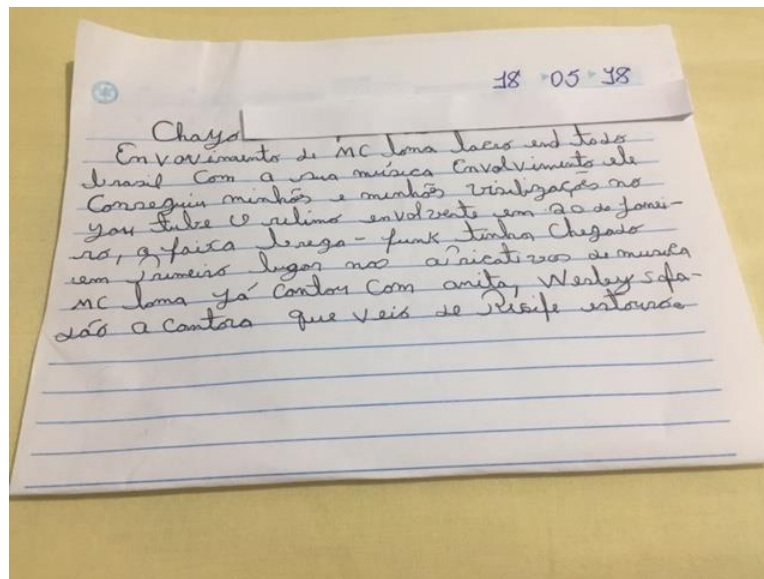 18 05 18
Chayd
Envovimento de MC loma lacro end todo
brasil com a sua música Envolvimento ele
Conseguiu minhões e minhões visilizações no
you tube O relimo envolvente em 20 de Janei-
ro, a faixa brega-funk tinha Chegado
em primeiro lugar nos a'ricativos de musica
MC loma já cantou com anita, Wesley safa-
dão a cantora que veis de Risife estouroo